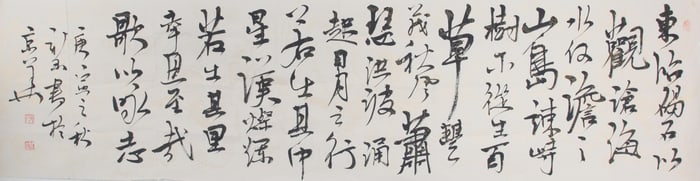 東臨碣石以
觀滄海
水何以澹々
山島竦峙
樹木從生百
草豐
茂秋風蕭
瑟洪波涌
起日月之行
若出其中
星漢燦爛
若出其里
幸甚至哉
歌以詠志
庚寅之秋
書於
京華